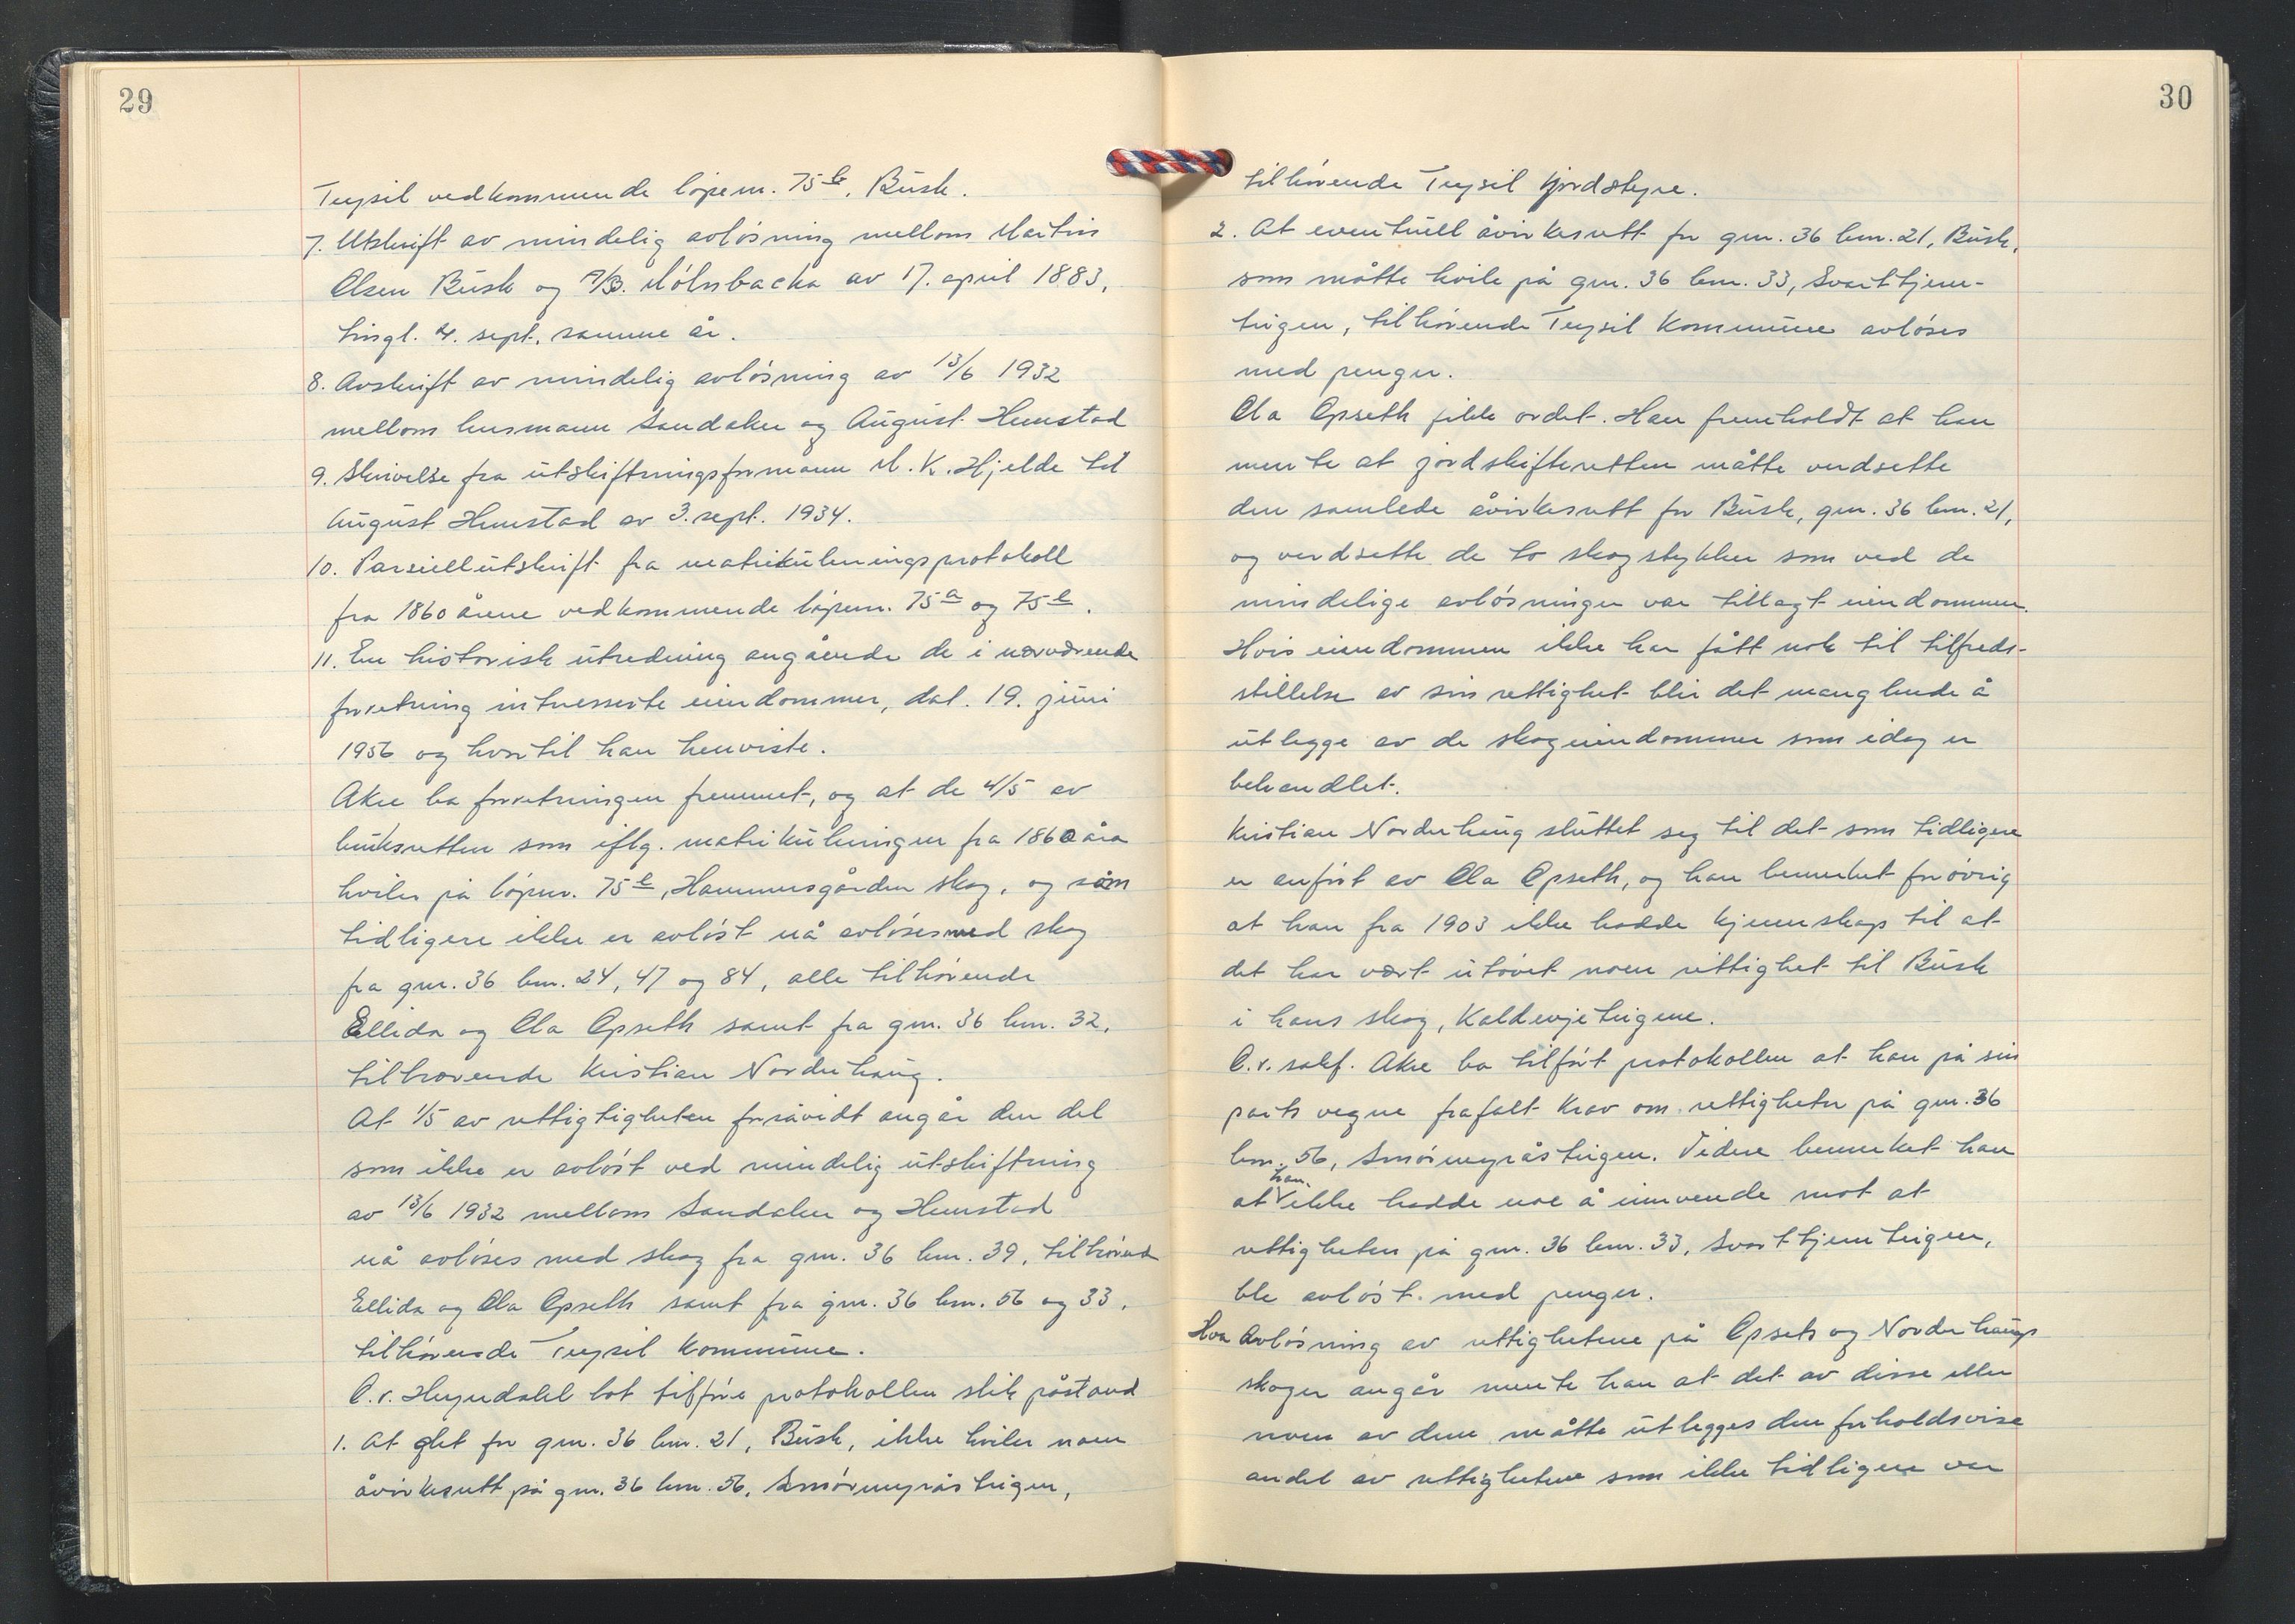 29
Trysil vedkommende løpenr. 75b, Busk.
7. Utskrift av mindelig avløsning mellom Martin
Olsen Busk og A/B. Mölnbacka av 17. april 1883,
tingl. 4. sept. samme år.
8. Avskrift av mindelig avløsning av 13/6 1932
mellom husmann Sandaker og August Hemstad
9. Skrivelse fra utskiftningsformann M. K. Hjelde til
August Hemstad av 3. sept. 1934.
10. Parsiellutskrift fra matrikuleringsprotokoll
fra 1860 årene vedkommende løpenr. 75a og 75b.
11. En historisk utredning angående de i nærværende
forretning interesserte eiendommer, dat. 19. juni
1956 og hvortil han henviste.
Akre ba forretningen fremmet, og at de 4/5 av
bruksretten som iflg. matrikuleringen fra 1860 åra
hviler på løpenr. 75b, Hammersgården skog, og som
tidligere ikke er avløst nå avløses med skog
fra gnr. 36 bnr. 24, 47 og 84, alle tilhørende
Ellida og Ola Opseth samt fra gnr. 36 bnr. 32,
tilhørende Kristian Norderhaug.
At 1/5 av rettigtigheten forsåvidt angår den del
som ikke er avløst ved mindelig utskiftning
av 13/6 1932 mellom Sandaker og Hemstad
nå avløses med skog fra gnr. 36 bnr. 39, tilhørend
Ellida og Ola Opseth samt fra gnr. 36 bnr. 56 og 33,
tilhørende Trysil Kommune.
O.r. Heyerdahl lot tilføre protokollen slik påstand
1. At det for gnr. 36 bnr. 21, Busk, ikke hviler noen
åvirkesrett på gnr. 36 bnr. 56, Smørmyråsteigen,
30
tilhørende Trysil Jordstyre.
2. At eventuell åvirkesrett for gnr. 36 bnr. 21, Busk,
som måtte hvile på gnr. 36 bnr. 33, Svarttjern-
teigen, tilhørende Trysil Kommune avløses
med penger.
Ola Opseth fikk ordet. Han fremholdt at han
mente at jordskifteretten måtte verdsette
den samlede åvirkesrett for Busk, gnr. 36 bnr. 21,
og verdsette de to skogstykker som ved de
mindelige avløsninger var tillagt eiendommen.
Hvis eiendommen ikke har fått nok til tilfreds-
stillelse av sin rettighet blir det manglende å
utlegge av de skogeiendommer som idag er
behandlet.
Kristian Norderhaug sluttet seg til det som tidligere
er anført av Ola Opseth, og han bemerket forøvrig
at han fra 1903 ikke hadde kjennskap til at
det har vært utøvet noen rettighet til Busk
i hans skog, Koldevjeteigene.
O.r. sakf. Akre ba tilført protokollen at han på sin
parts vegne frafalt krav om rettigheter på gnr. 36
bnr. 56, Smørmyråsteigen. Videre bemerket han
at han ikke hadde noe å innvende mot at
rettigheten på gnr. 36 bnr. 33, Svarttjernteigen,
ble avløst med penger.
Hva avløsning av rettighetene på Opsets og Norderhaugs
skoger angår mente han at det av disse eller
noen av dem måtte utlegges den forholdsvise
andel av rettighetene som ikke tidligere var